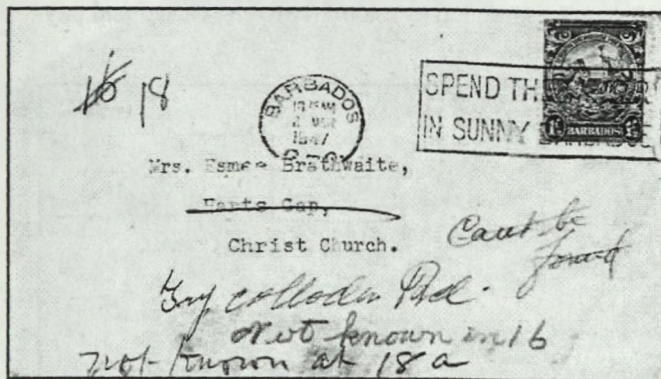 18
BARBADOS
1947
G.P.O.
SPEND TH
IN SUNNY
1D BARBADOS 1D
Mrs. Esmee Brathwaite,
Harts Gap,
Christ Church.
Cant be
found
Try Colloden Rd.
Not known in 16
Not known at 18 a